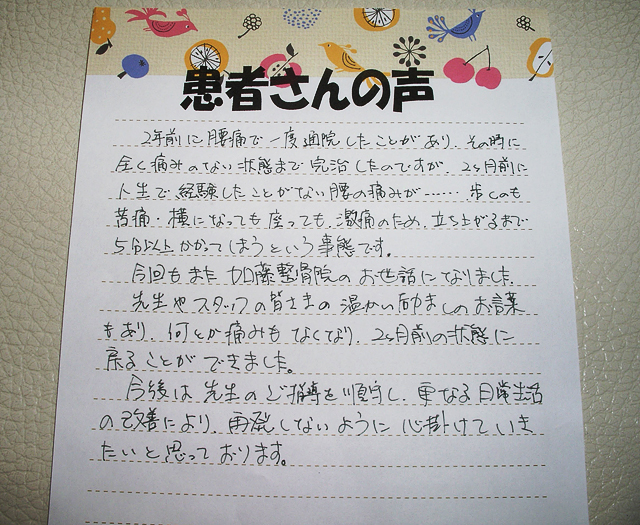 患者さんの声
2年前に腰痛で一度通院したことがあり、その時に
全く痛みのない状態まで完治したのですが、2ヶ月前に
人生で経験したことがない腰の痛みが……歩くのも
苦痛・横になっても座っても、激痛のため、立ち上がるまで
5分以上かかってしまうという事態です。
今回もまた加藤整骨院のお世話になりました。
先生やスタッフの皆さまの温かい励ましのお言葉
もあり、何とか痛みもなくなり、2ヶ月前の状態に
戻ることができました。
今後は先生のご指導を順守し、更なる日常生活
の改善により、再発しないように心掛けていき
たいと思っております。